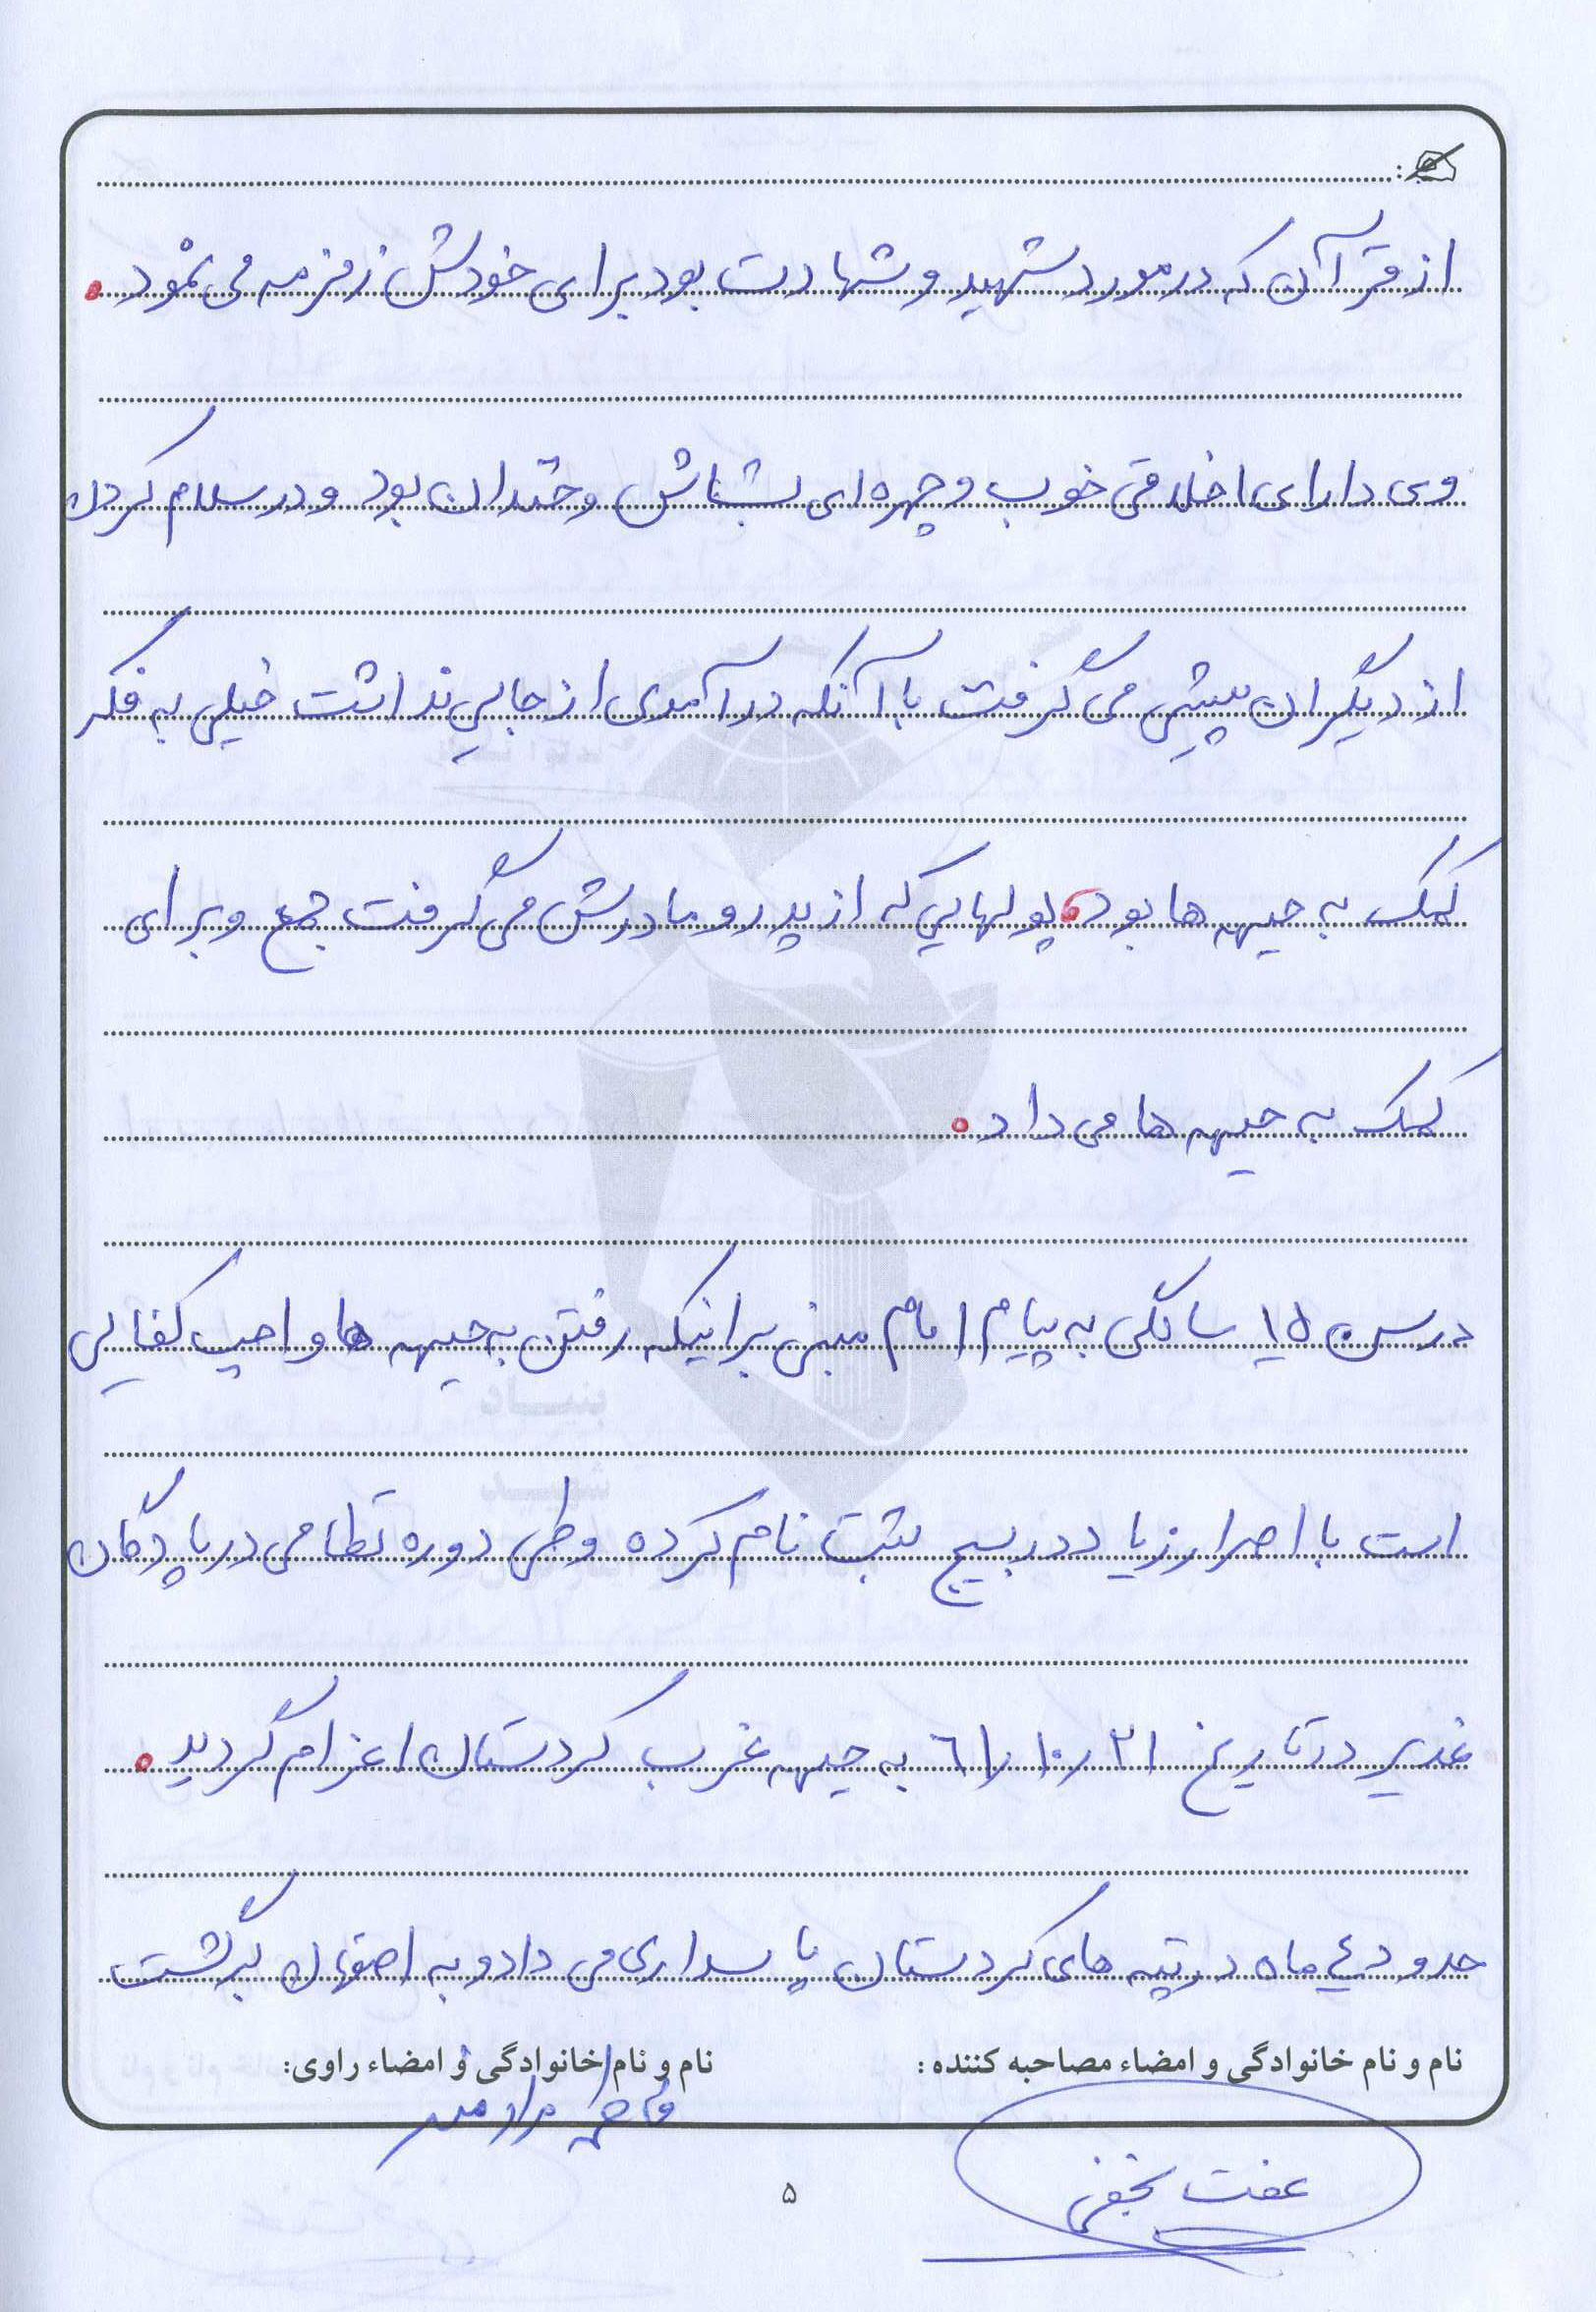 از قرآن که در مورد شهید و شهادت بود برای خودش زمزمه می نمود.
وی دارای اخلاقی خوب و چهره ای بشاش و خندان بود و در سلام کردن
از دیگران پیشی می گرفت با آنکه درآمدی از جایی نداشت خیلی به فکر
کمک به جبهه ها بود. پولهایی که از پدر و مادرش می گرفت جمع و برای
کمک به جبهه ها می داد.
در سن ۱۵ سالگی به پیام امام مبنی بر اینکه رفتن به جبهه ها واجب کفایی
است با اصرار زیاد در بسیج ثبت نام کرده و طی دوره نظامی در پادگان
غدیر در تاریخ ۲۱ / ۱۰ / ۶۱ به جبهه غرب کردستان اعزام گردید.
حدود ۴ ماه در تپه های کردستان پاسداری می داد و به اصفهان برگشت
نام و نام خانوادگی و امضاء مصاحبه کننده : نام و نام خانوادگی و امضاء راوی:
عفت نجفی
۵